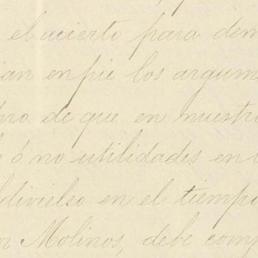 el acierto para dem
ian en pie los argum
bro de que en nuestro
ó no utilidades en
en el tiempo
Molinos, debe comp